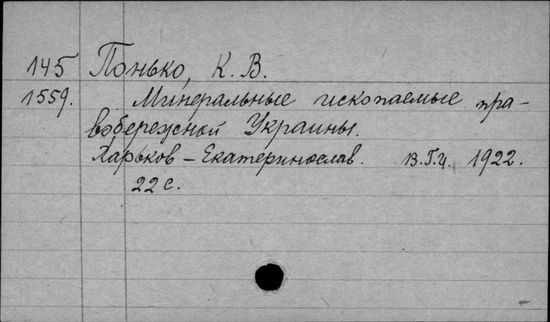 145 Понько, К. В.
1559. Минеральные ископаемые пра-
вобережной Украины.
Харьков – Екатеринослав. В.Г.И. 1922.
22 с.